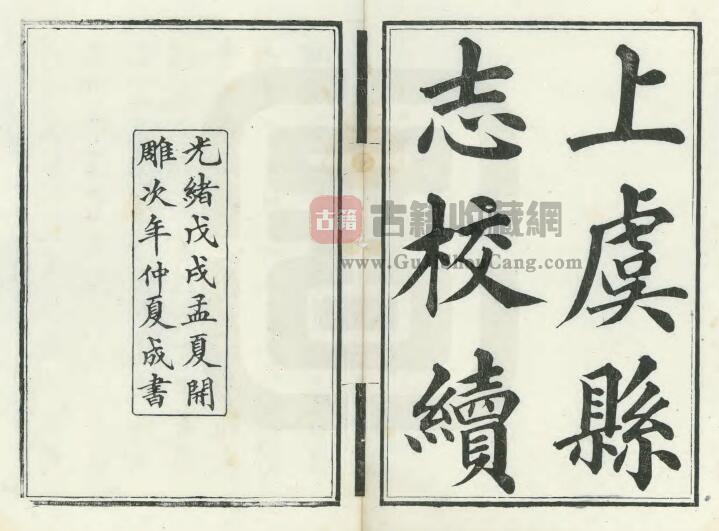 上虞縣
志校續
光緒戊戌孟夏開
雕次年仲夏成書
古籍
古籍收藏網
www.GujiShouCang.com